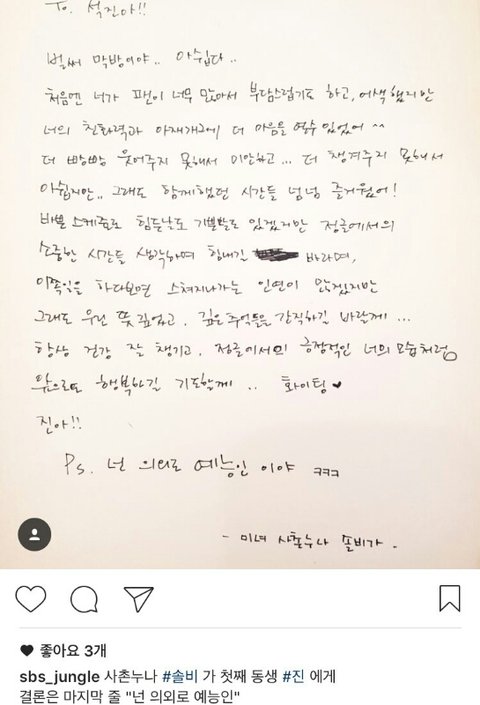 To. 석진아!!
벌써 막방이야.. 아쉽다..
처음엔 너가 팬이 너무 많아서 부담스럽기도 하고, 어색했지만
너의 친화력과 아재개그에 더 마음을 열수 있었어 ^^
더 빵빵 웃어주지 못해서 미안하고... 더 챙겨주지 못해서
아쉽지만.. 그래도 함께했던 시간들 넘넘 즐거웠어!
바쁜 스케줄로 힘든날도 기쁜날도 있겠지만 정글에서의
소중한 시간들 생각하며 힘내길 바라며,
이쪽일을 하다보면 스쳐지나가는 인연이 많겠지만
그래도 우린 뜻깊었고, 깊은 추억들을 간직하길 바랄게...
항상 건강 잘 챙기고, 정글에서의 긍정적인 너의 모습처럼
앞으로도 행복하길 기도할게.. 화이팅♥
진아!!
Ps. 넌 의외로 예능인 이야 ㅋㅋㅋ
- 미녀 사촌누나 솔비가.
좋아요 3개
sbs_jungle 사촌누나 #솔비 가 첫째 동생 #진 에게
결론은 마지막 줄 "넌 의외로 예능인"